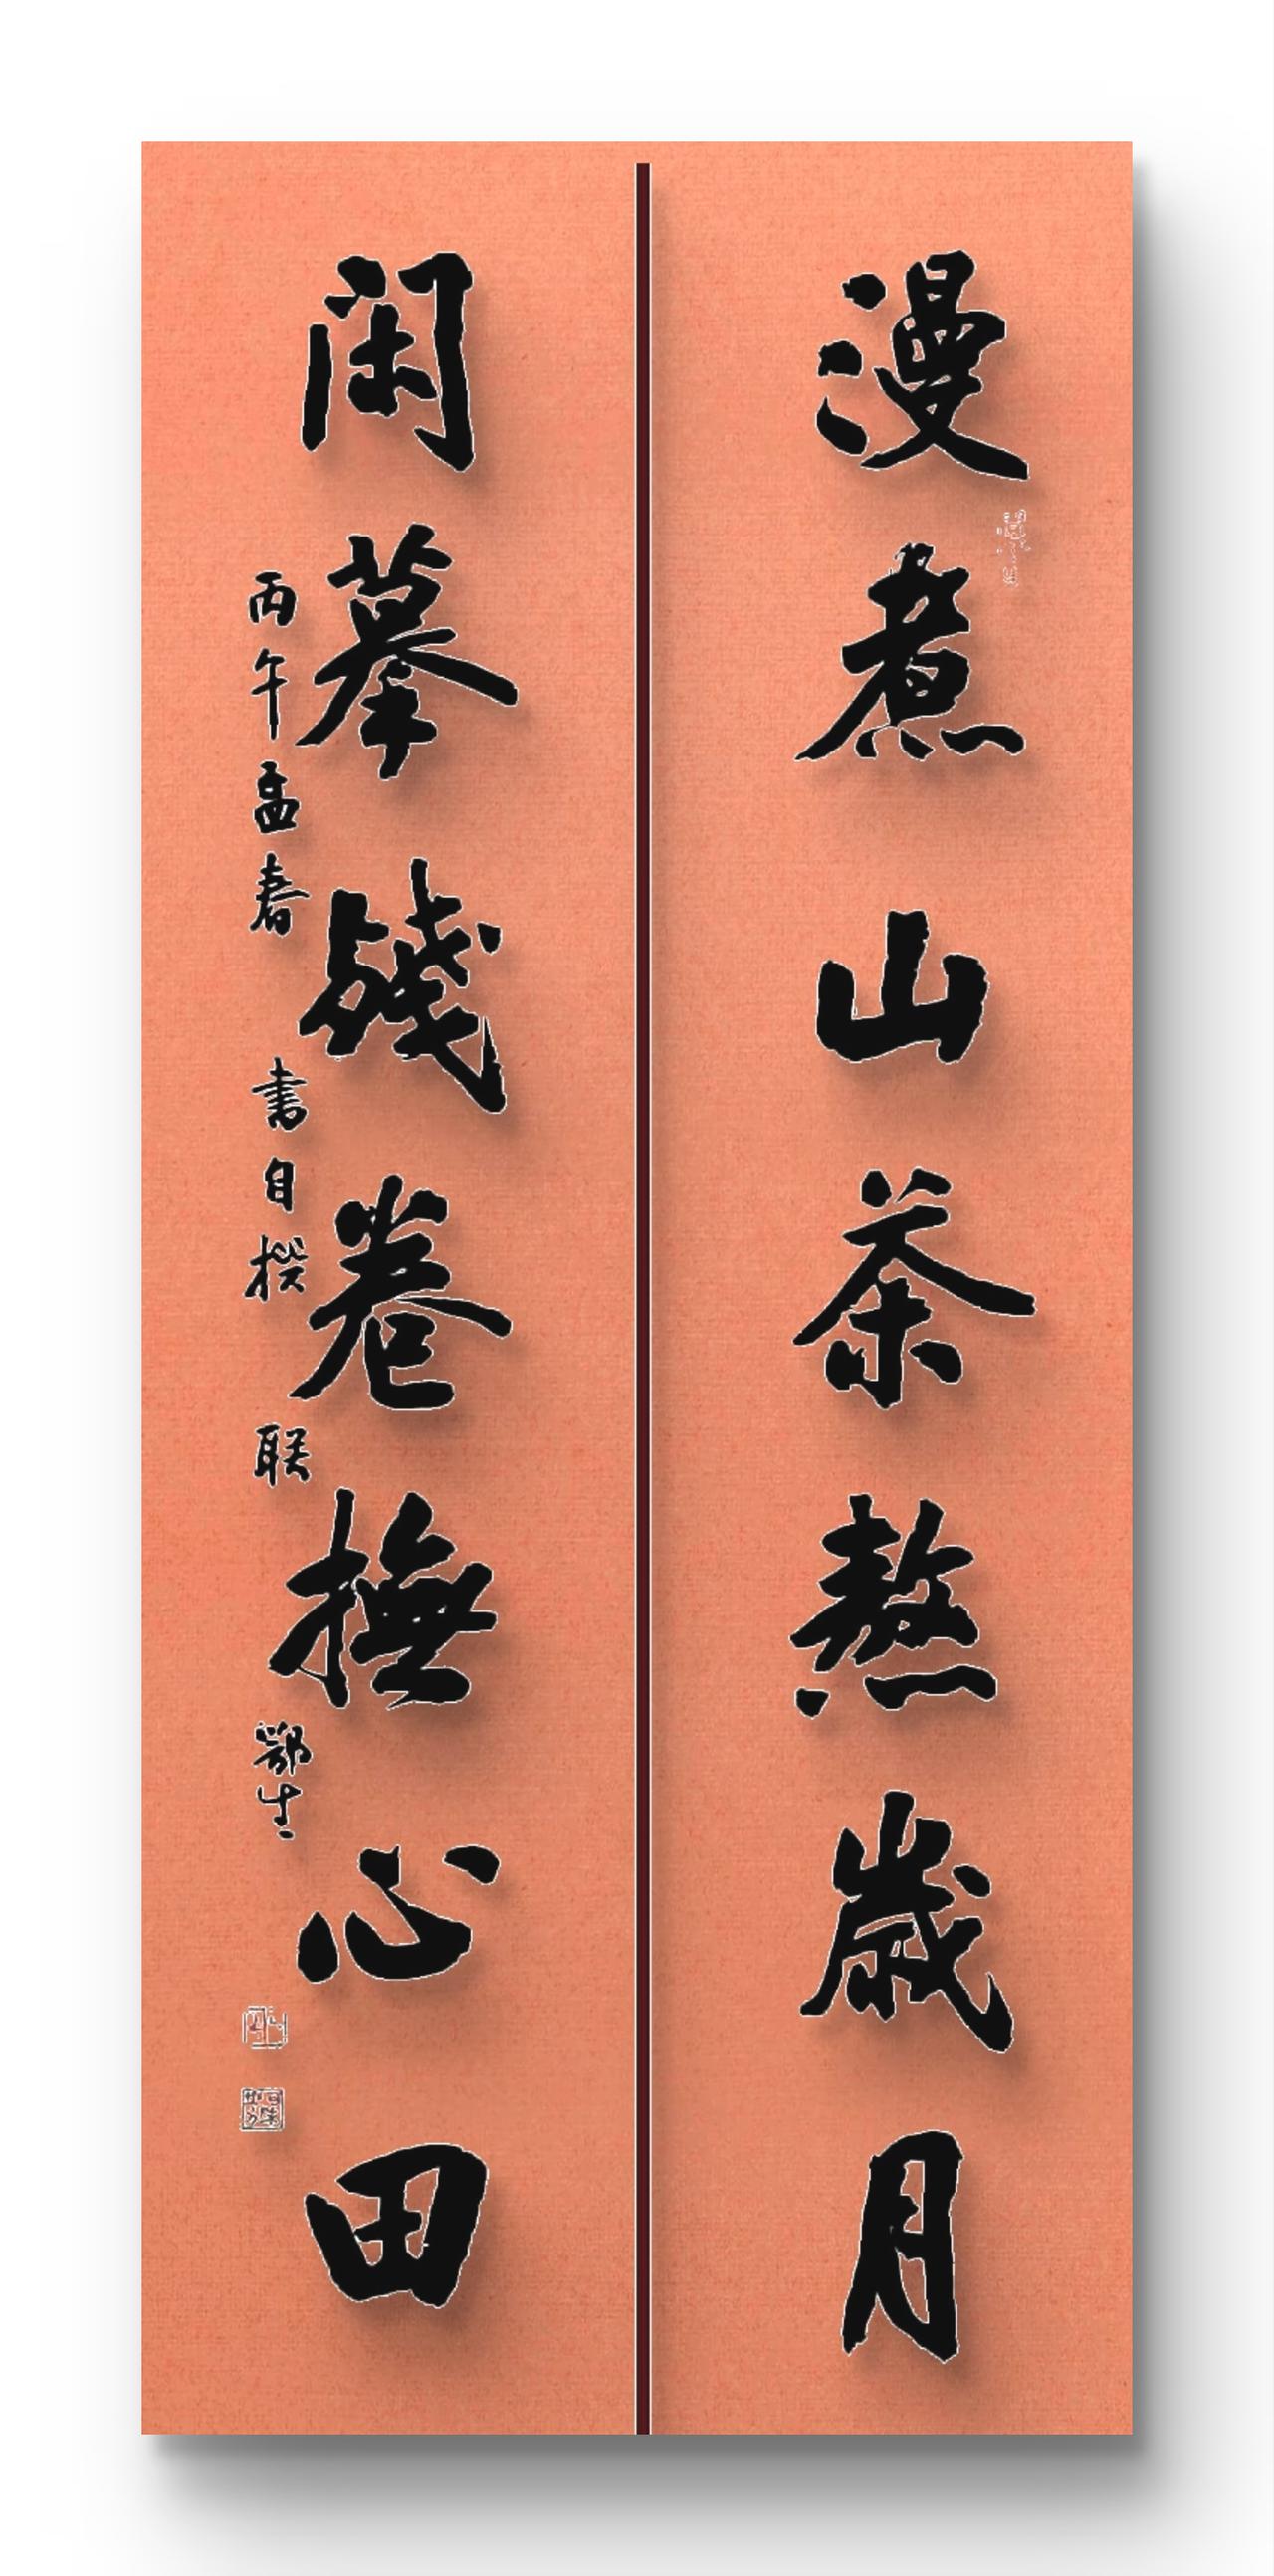 漫煮山茶熬歲月
閑摹殘卷撫心田
丙午孟春書自撰联鄂生